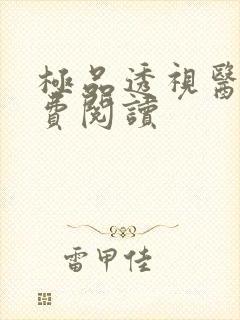 極品透視醫
費閱讀
雷甲佳